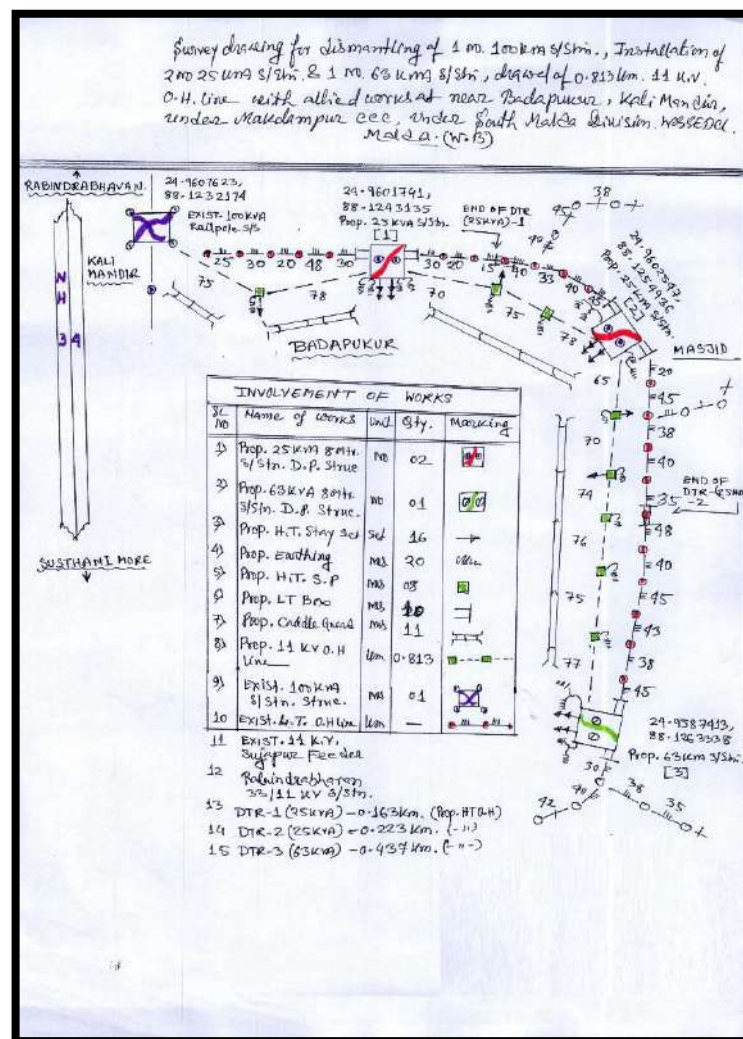 Survey drawing for dismantling of 1 no. 100kma S/Stn., Installation of
2 no 25 kma S/Stn. & 1 no. 63 kma S/Stn, drawal of 0.813km. 11 K.V.
O.H. line with allied works at near Badapukur, Kali Mandir,
under Makdampur ccc, under South Malda Division. WBSEDCL
Malda. (W.B)
RABINDRABHAVAN.
24.9607623,
88.1232174
EXIST. 100KVA
Railpole S/S
KALI
MANDIR
NH
34
SUSTHANI MORE
24.9601741,
88.1243135
Prop. 25 KVA S/Stn.
[1]
END OF DTR
(25KVA)-1
25 30 20 48 30
30 20 15 40 33 40 45
75 78 70 75 78
40 45 38
BADAPUKUR
88.1254936
Prop. 25 KVA S/Stn.
[2]
MASJID
65 70 74 76 75 77
20
45
38
40
35
END OF
-2
48
40
45
43
38
45
24.9587413,
88.1263538
Prop. 63KMA S/Stn.
[3]
30
40 42
38 35
INVOLVEMENT OF WORKS
SL NO Name of works Unit Qty. Marking
1) Prop. 25KVA 8Mtr. S/Stn. D.P. Struc No 02
2) Prop. 63KVA 8Mtr. S/Stn. D.P. Struc. No 01
3) Prop. H.T. Stay Set Set 16
4) Prop. Earthing nos 20
5) Prop. H.T. S.P nos 08
6 Prop. LT Box nos 10
7) Prop. Caddle Guard nos 11
8) Prop. 11 KV O.H Line km 0.813
9) Exist. 100KVA S/Stn. Struc. nos 01
10 Exist. L.T. O.H Line km —
11 EXIST. 11 K.V. Sujapur Feeder
12 Rabindrabhavan 33/11 KV S/Stn.
13 DTR-1 (25KVA) - 0.163Km. (Prop. HT O.H)
14 DTR-2 (25KVA) = 0.223 Km. (-"-)
15 DTR-3 (63KVA) - 0.437 Km. (-"-)